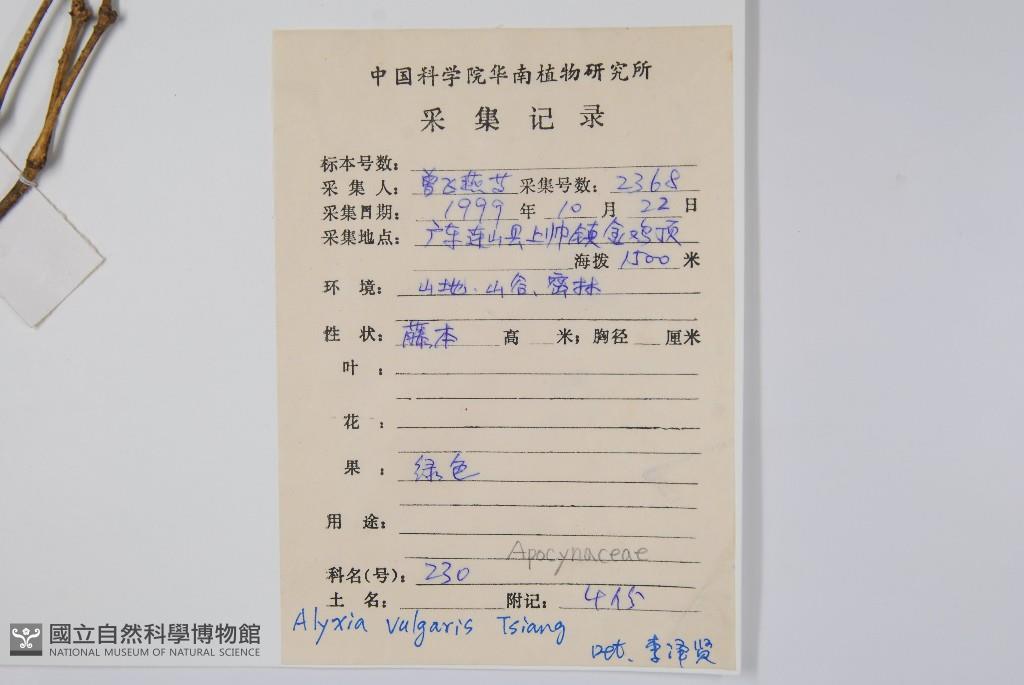 中国科学院华南植物研究所
采集记录
标本号数：
采集人：曾飞燕等 采集号数：2368
采集日期：1999年10月22日
采集地点：广东连山县上帅镇金鸡顶
海拨1500米
环境：山地.山谷、密林
性状：藤本 高 米；胸径 厘米
叶：
花：
果：绿色
用途：
Apocynaceae
科名(号)：230
土名： 附记：4份
Alyxia vulgaris Tsiang
Det. 李泽贤
國立自然科學博物館
NATIONAL MUSEUM OF NATURAL SCIENCE